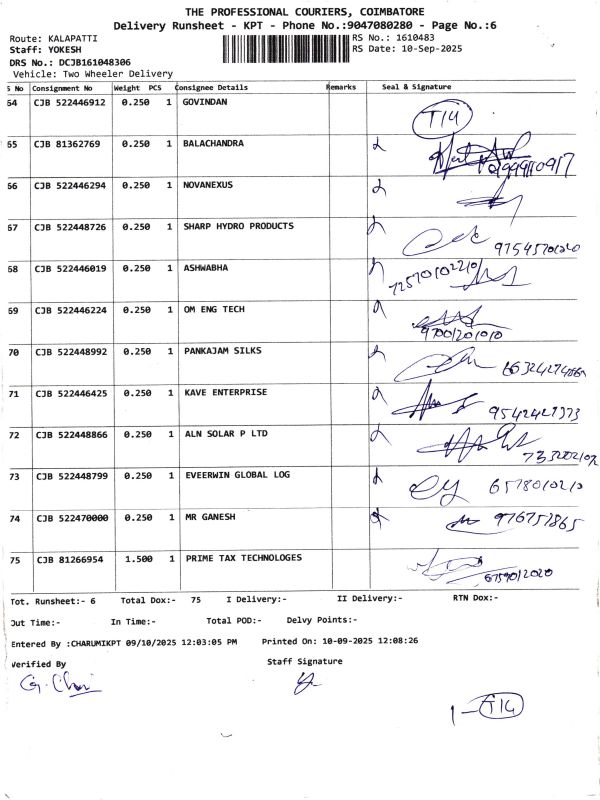 THE PROFESSIONAL COURIERS, COIMBATORE
Delivery Runsheet - KPT - Phone No.:9047080280 - Page No.:6
Route: KALAPATTI RS No.: 1610483
Staff: YOKESH RS Date: 10-Sep-2025
DRS No.: DCJB161048306
Vehicle: Two Wheeler Delivery
S No Consignment No Weight PCS Consignee Details Remarks Seal & Signature
64 CJB 522446912 0.250 1 GOVINDAN
65 CJB 81362769 0.250 1 BALACHANDRA
66 CJB 522446294 0.250 1 NOVANEXUS
67 CJB 522448726 0.250 1 SHARP HYDRO PRODUCTS
68 CJB 522446019 0.250 1 ASHWABHA 72570102210
69 CJB 522446224 0.250 1 OM ENG TECH 97001201010
70 CJB 522448992 0.250 1 PANKAJAM SILKS
71 CJB 522446425 0.250 1 KAVE ENTERPRISE 9542427373
72 CJB 522448866 0.250 1 ALN SOLAR P LTD
73 CJB 522448799 0.250 1 EVEERWIN GLOBAL LOG 6578010210
74 CJB 522470000 0.250 1 MR GANESH 976757865
75 CJB 81266954 1.500 1 PRIME TAX TECHNOLOGES
Tot. Runsheet:- 6 Total Dox:- 75 I Delivery:- II Delivery:- RTN Dox:-
Out Time:- In Time:- Total POD:- Delvy Points:-
Entered By :CHARUMIKPT 09/10/2025 12:03:05 PM Printed On: 10-09-2025 12:08:26
Verified By Staff Signature